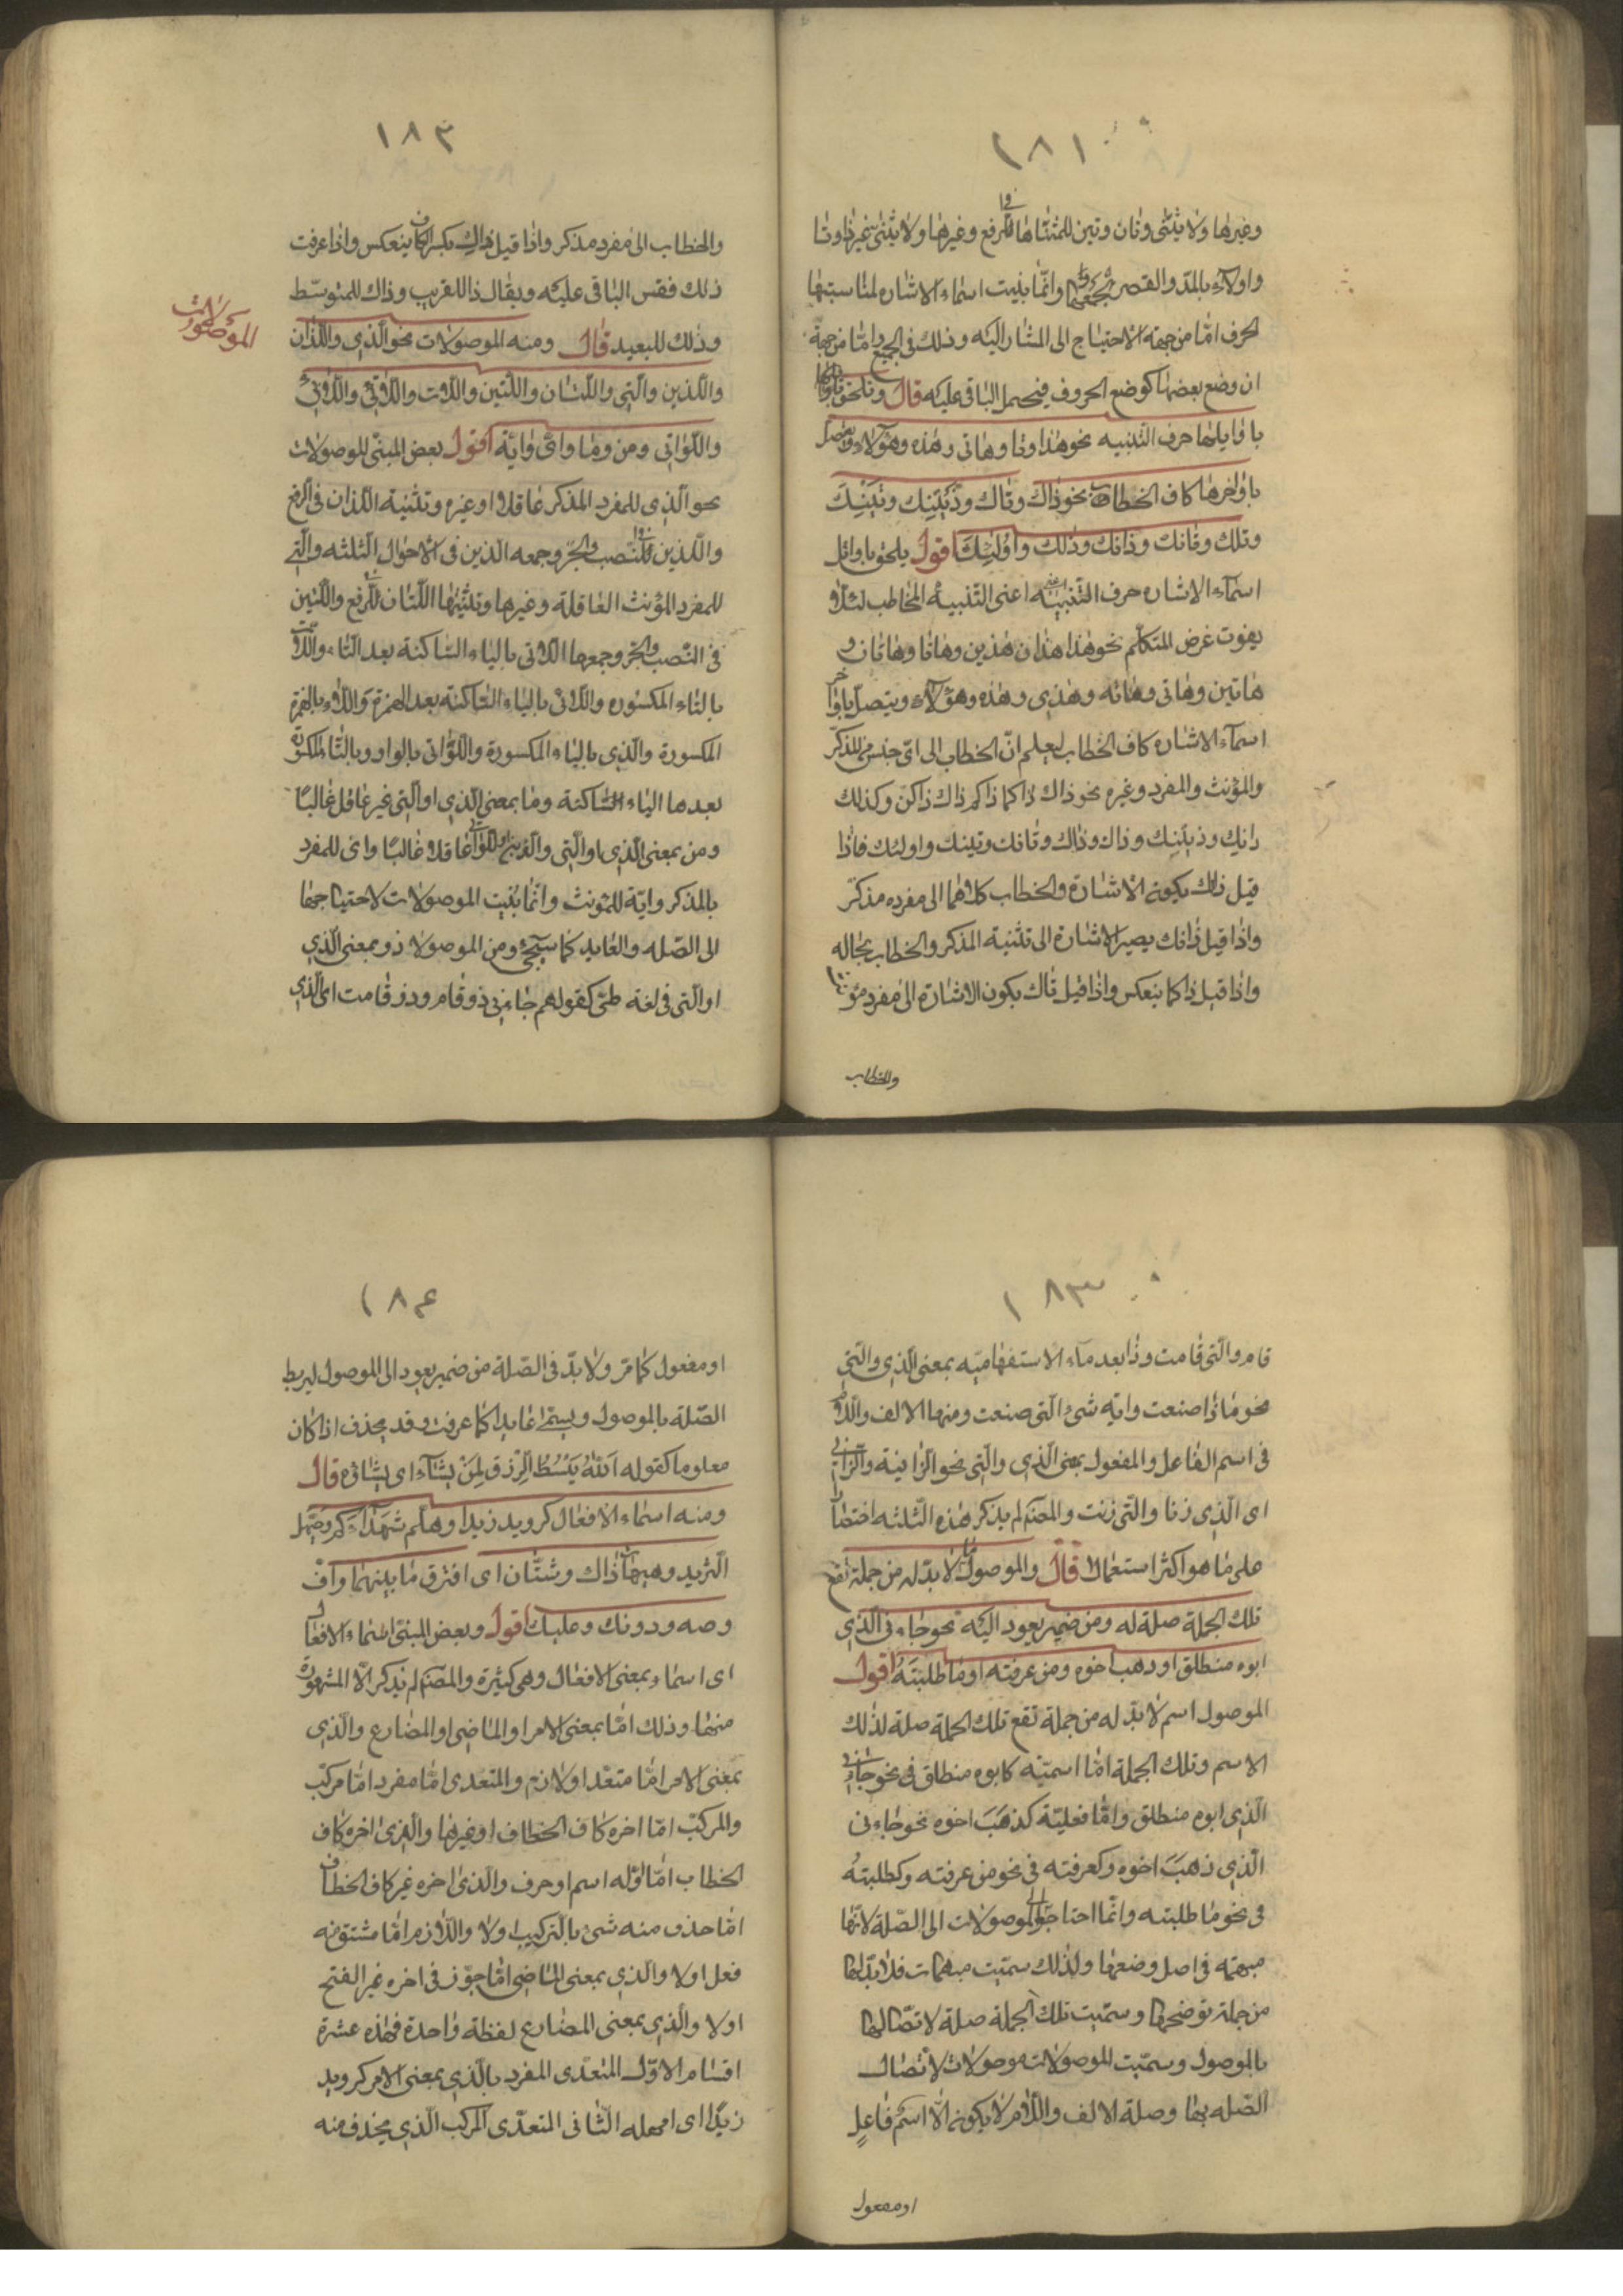 ١٨١
وغيرها ولا يثنى وتان وتين للمثناها في الرفع وغيرها ولا يثنى غير ذا وتا
واولآء بالمدّ والقصر لجمعهما وانّما بنيت اسماء الاشاره لمناسبتها
الحرف امّا من جهة الاحتياج الى المشار اليه وذلك في الجميع وامّا من جهة
ان وضع بعضها كوضع الحروف فيحمل الباقى عليه قال وتلحق
باوايلها حرف التنبيه نحو هذا وتا وهاتى وهذه وهؤلاء ويتصل
باواخرها كاف الخطاب نحو ذاك وتاك وذَيْنِكَ وتَيْنِكَ
وتلك وتانك وذانك وذلك واُولٰئِكَ اقول يلحق باوائل
اسمآء الاشاره حرف التّنبيه اعنى التّنبيه المخاطب لئلّا
يفوت غرض المتكلّم نحو هذا هذان هذين وهاتا وهاتان و
هاتين وهاتى وهاته وهذى وهذه وهؤلآء ويتصل باواخر
اسمآء الاشاره كاف الخطاب ليعلم انّ الخطاب الى اىّ جنس من المذكّر
والمؤنث والمفرد وغيره نحو ذاك ذاكما ذاكم ذاك ذاكنّ وكذلك
ذانك وذينك وذاك وذاك وتانك وتينك واولئك فاذا
قيل ذلك يكونه الاشارة والخطاب كلاهما الى مفرده مذكّر
واذا قيل ذانك يصير الاشارة الى تثنية المذكر والخطاب بحاله
واذا قيل ذاكما ينعكس واذا قيل تاك يكون الاشارة الى مفرد مؤنث
والخطاب
١٨٢
والخطاب الى مفرد مذكر واذا قيل ذاك بكسر الكاف ينعكس واذا عرفت
ذلك فقس الباقى عليه ويقال ذا للقريب وذاك للمتوسّط
وذلك للبعيد قال ومنه الموصولات نحو الّذى واللّذان
الموصولات
واللّذين والّتى واللّتان واللّتين واللّات واللّائى واللّاتى
واللّواتى ومن وما واىّ وايّة اقول بعض المبنّى الموصولات
نحو الّذى للمفرد المذكر عاقلا او غيره وتثنية اللّذان في الرفع
واللّذين في النّصب والجرّ وجمعه الذين في الاحوال الثّلثه والّتى
للمفرد المؤنث العاقلة وغيرها وتثنيتها اللّتان في الرفع واللّتين
في النّصب والجرّ وجمعها اللاتى بالياء السّاكنة بعد التّاء واللّات
بالتاء المكسوره واللائى بالياء السّاكنه بعد الهمزة واللّاء بالهمزة
المكسورة والّذى بالياء المكسورة واللّواتى بالواو وبالتّاء المكسورة
بعدها الياء السّاكنة وما بمعنى الّذى او الّتى غير عاقل غالبًا
ومن بمعنى الّذى او الّتى والّذين واللّواتى عاقلا غالبًا واى للمفرد
بالمذكر وايّة للمؤنث وانّما بنيت الموصولات لاحتياجها
الى الصّله والعايد كما سيجئ ومن الموصولا ذو بمعنى الّذى
او الّتى في لغة طىّ كقولهم جاءنى ذو قام وذو قامت اى الّذى
١٨٣
قام والّتى قامت وذا بعد مآء الاستفهاميّه بمعنى الّذى والّتى
نحو ماذا صنعت وايّه شئ الّتى صنعت ومنها الالف واللّام
في اسم الفاعل والمفعول بمعنى الّذى والّتى نحو الزّانية والزّانى
اى الّذى زنا والّتى زنت والمصنّم لم يذكر هذه الثّلثه اختصارا
على ما هو اكثر استعمالا قال والموصول ما لا بدّ له من جملة تقع
تلك الجملة صلة له ومن ضمير يعود اليه نحو جاءنى الّذى
ابوه منطلق او ذهب اخوه ومن عرفته او ما طلبتَه اقول
الموصول اسم لا بدّ له من جملة تقع تلك الجملة صلة لذلك
الاسم وتلك الجملة امّا اسميّه كابوه منطلق في نحو جاءنى
الّذى ابوه منطلق وامّا فعليّة كذهَبَ اخوه نحو جاءنى
الّذى ذهبَ اخوه وكعرفته في نحو من عرفته وكطلبتهُ
في نحو ما طلبته وانّما احتاج الموصولات الى الصّلة لانّها
مبهمة في اصل وضعها ولذلك سمّيت مبهمات فلا بدّ لها
من جملة توضحها وسمّيت تلك الجملة صلة لاتّصالها
بالموصول وسمّيت الموصولات موصولات لاتّصال
الصّله بها وصلة الالف واللّام لا يكونه الّا اسم فاعلٍ
او مفعول
١٨٤
او مفعول كما مرّ ولا بدّ في الصّلة من ضمير يعود الى الموصول ليربط
الصّلة بالموصول ويسمّى عايدا كما عرفت وقد يحذف اذا كان
معلوما كقوله اللّٰهُ يَبْسُطُ الرِّزْقَ لِمَنْ يشآء اى يشاؤه قال
ومنه اسماء الافعال كرويد زيدا وهلمّ شهدآءكم وحيّهل
الثّريد وهيهات ذاك وشتّان اى افترق ما بينهما واُفّ
وصه ودونك وعليك اقول وبعض المبنّى اسماء الافعال
اى اسماء بمعنى الافعال وهى كثيرة والمصنّم لم يذكر الّا المشهورة
منها وذلك امّا بمعنى الامر او الماضى او المضارع والّذى
بمعنى الامر امّا متعدّ او لازم والمتعدى امّا مفرد امّا مركّب
والمركّب امّا اخره كاف الخطاف او غيرها والّذى اخره كاف
الخطاب امّا اوّله اسم او حرف والّذى اخره غير كاف الخطاف
امّا حذف منه شئ بالتركيب او لا واللّازم امّا مشتق منه
فعل او لا والّذى بمعنى الماضى امّا جوّز في اخره غير الفتح
او لا والّذى بمعنى المضارع لفظة واحدة فهذه عشرة
اقسام الاوّل المتعدّى المفرد بالّذى بمعنى الامر كرويد
زيدًا اى امهله الثّانى المتعدّى المركب الّذى يحذف منه